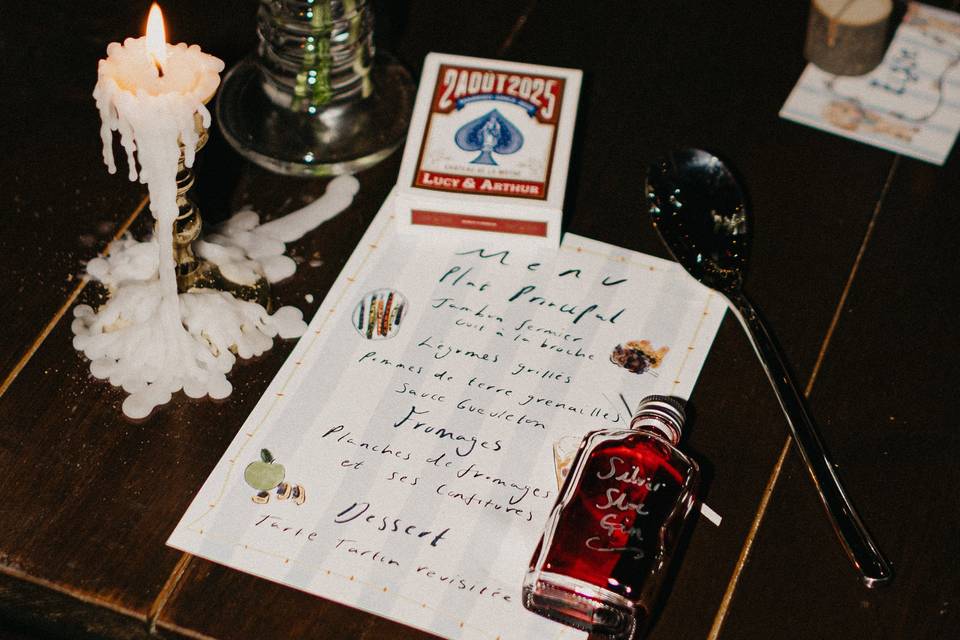 2 AOÛT 2025
CHATEAU DE LA MOTHE
LUCY & ARTHUR
Menu
Plat Principal
Jambon fermier
cuit à la broche
Légumes grillés
Pommes de terre grenailles
Sauce Gueuleton
Fromages
Planches de fromages
et ses confitures
Dessert
Tarte Tartin revisitée
Silver
Sloe
Gin